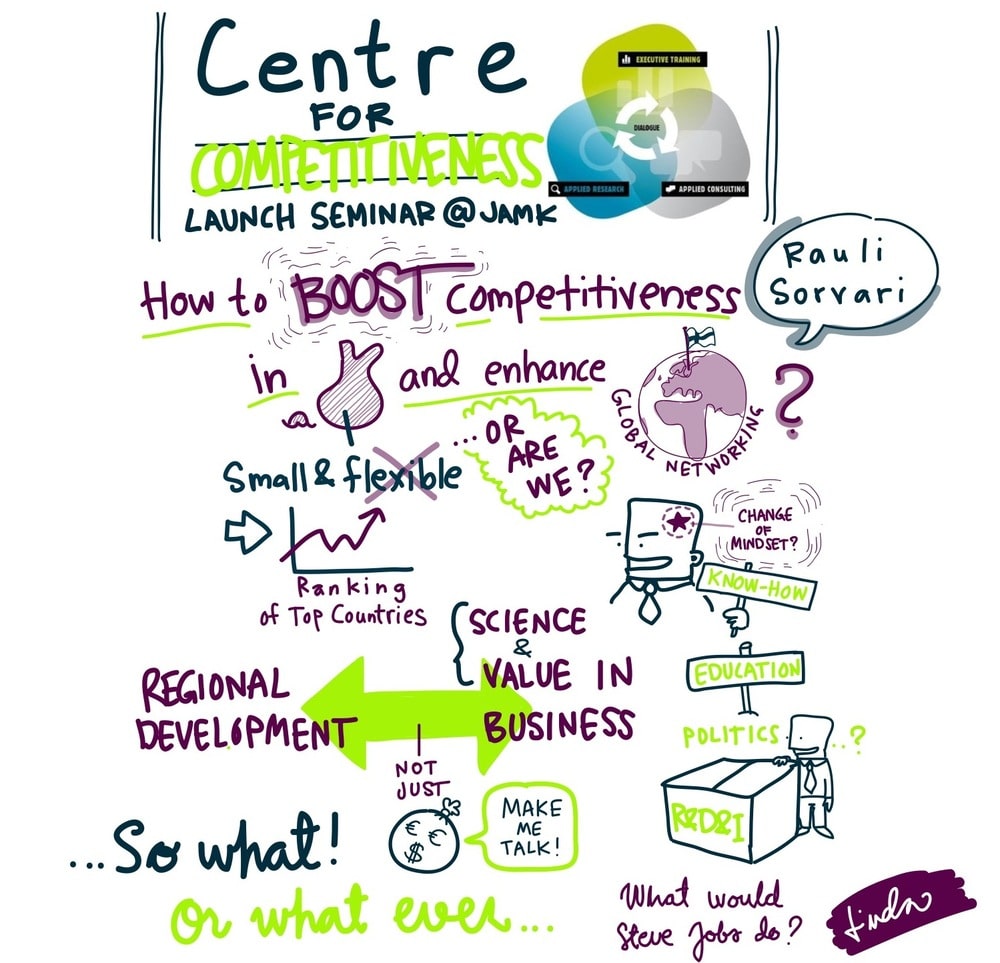 Centre
FOR
COMPETITIVENESS
LAUNCH SEMINAR @ JAMK
EXECUTIVE TRAINING
DIALOGUE
APPLIED RESEARCH
APPLIED CONSULTING
Rauli
Sorvari
How to BOOST competitiveness
in and enhance
GLOBAL NETWORKING
?
Small & flexible
... OR
ARE
WE?
Ranking
of Top Countries
CHANGE
OF
MINDSET?
KNOW-HOW
EDUCATION
POLITICS ...?
R&D&I
SCIENCE
&
VALUE IN
BUSINESS
REGIONAL
DEVELOPMENT
NOT
JUST
€ €
$
MAKE
ME
TALK!
...So what!
Or what ever...
What would
Steve Jobs do?
Linda